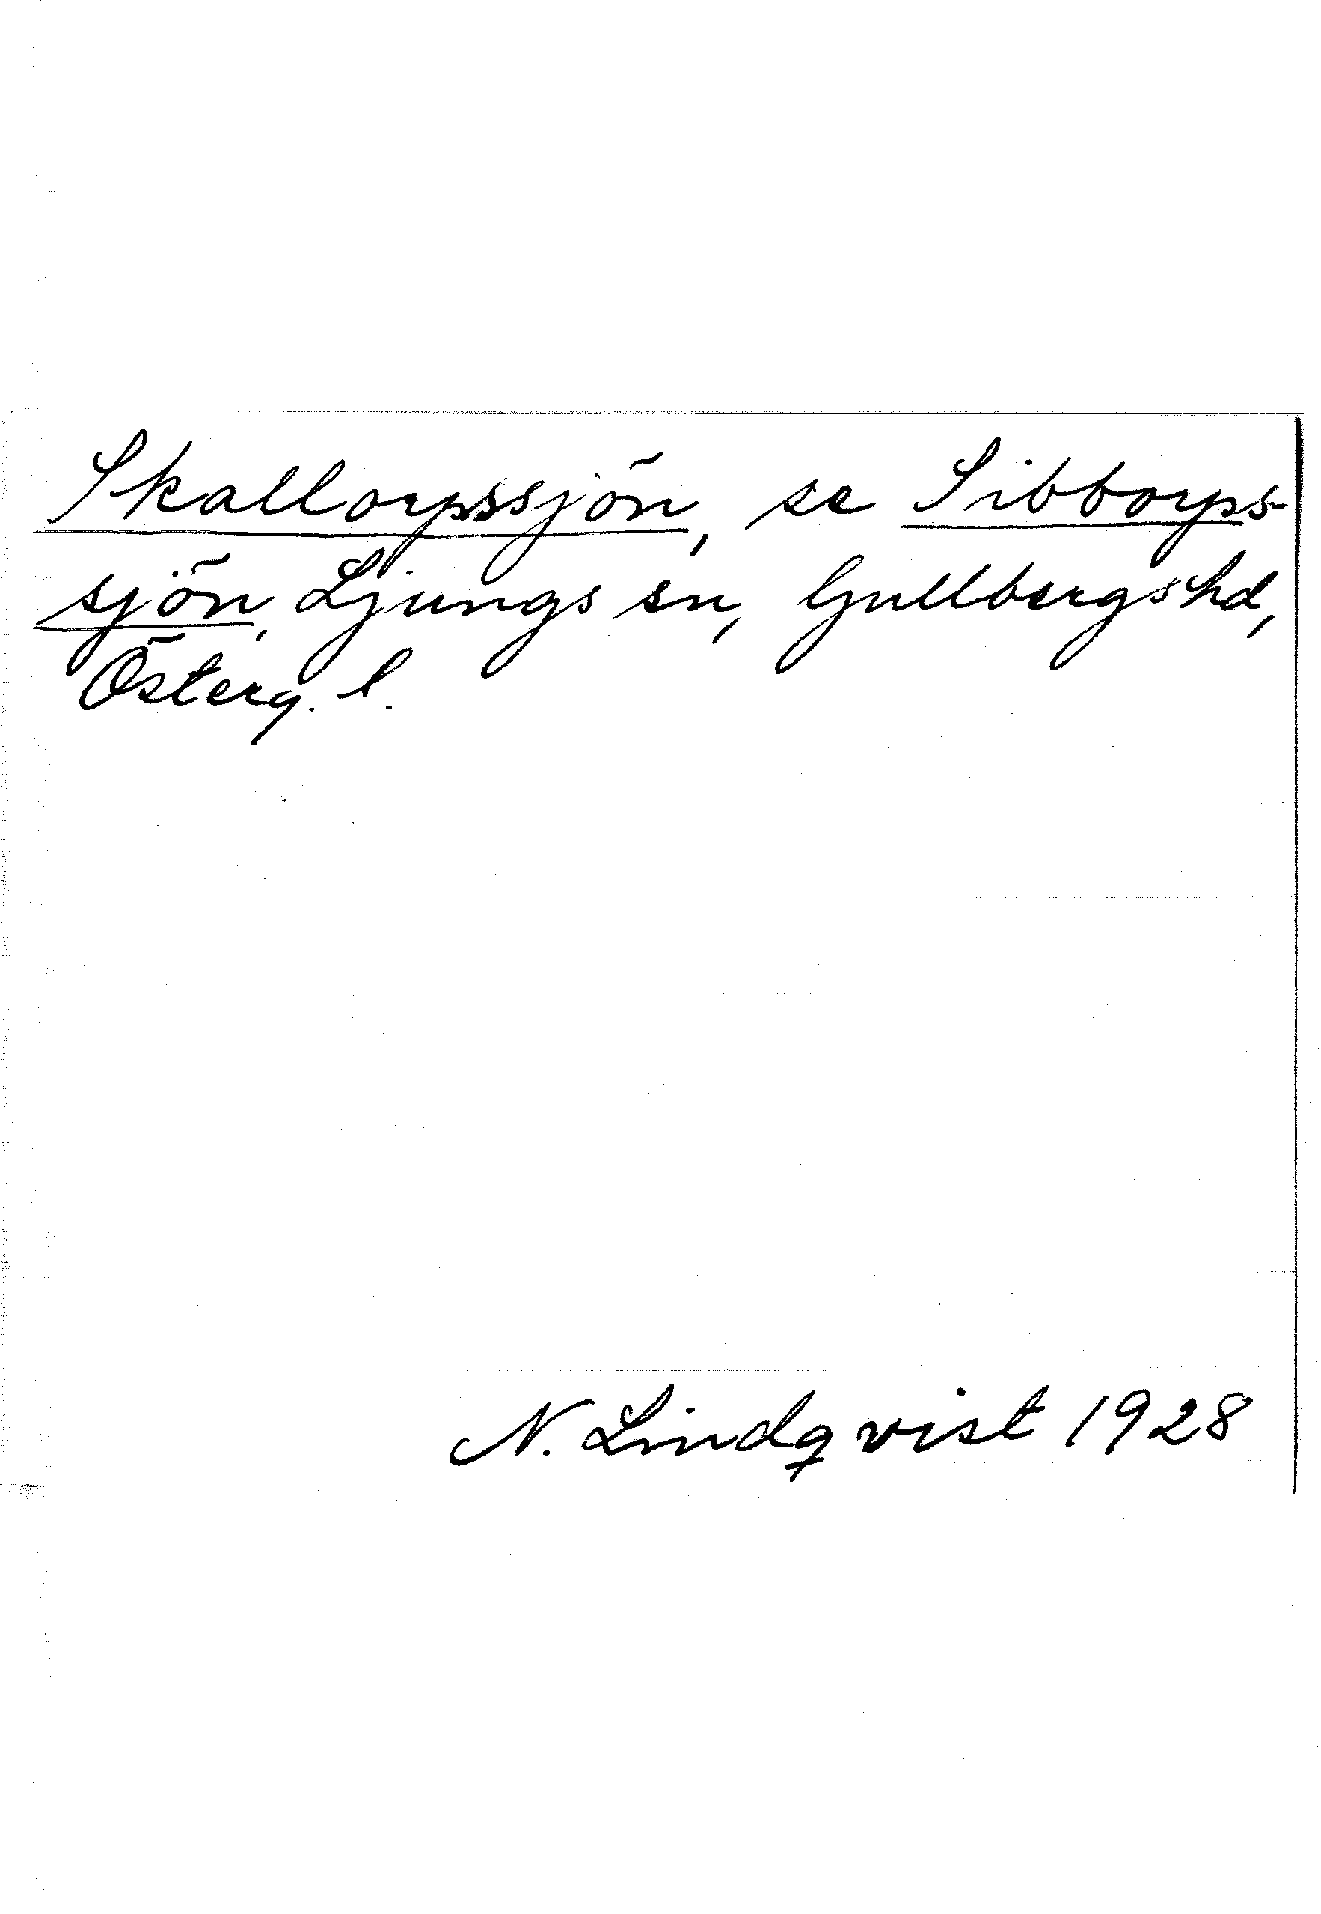 Skallorpssjön, se Sibborps-
sjön, Ljungs sn, Gullbergs hd,
Österg. l.
N. Lindqvist 1928